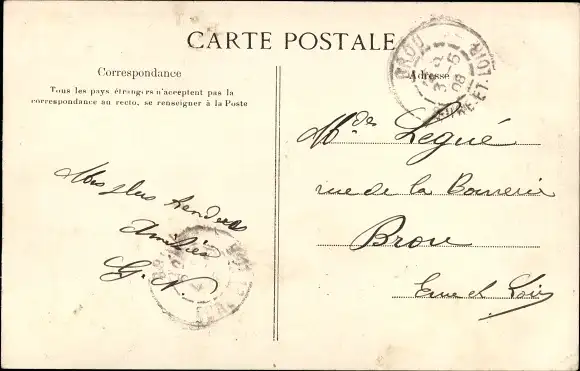 CARTE POSTALE
Correspondance
Tous les pays étrangers n'acceptent pas la
correspondance au recto, se renseigner à la Poste
Mes plus tendres
Amitiés
G. N.
Adresse
BROU
3 -5
08
EURE-ET-LOIR
Legué
rue de la
Brou
Eure et Loir